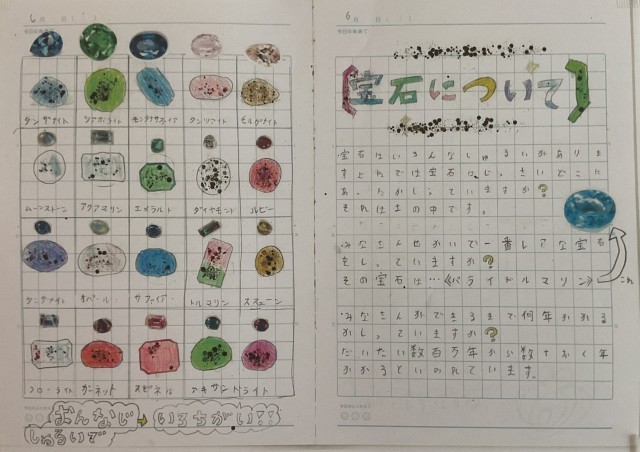 6月 日
タンザナイト
モンタナサファイア
クンツァイト
モルガナイト
ムーンストーン
アクアマリン
エメラルト
ダイヤモンド
ルビー
タンザナイト
オパール
サファイア
トルマリン
ガーネット
スピネル
アレキサンドライト
おんなじ→いろちがい!!
しゅるいで
6月 日
宝石について
宝石はいろんなしゅるいがありま
すよね?では宝石は、さいどこに
あったかしっていますか?
それは土の中です。
みなさんせかいで一番レアな宝石
をしっていますか?
その宝石は…《パライバトルマリン》
これ
みなさんができるまで何年かかる
かしっていますか?
だいたい数百万年から数十おく年
かかるといわれています。